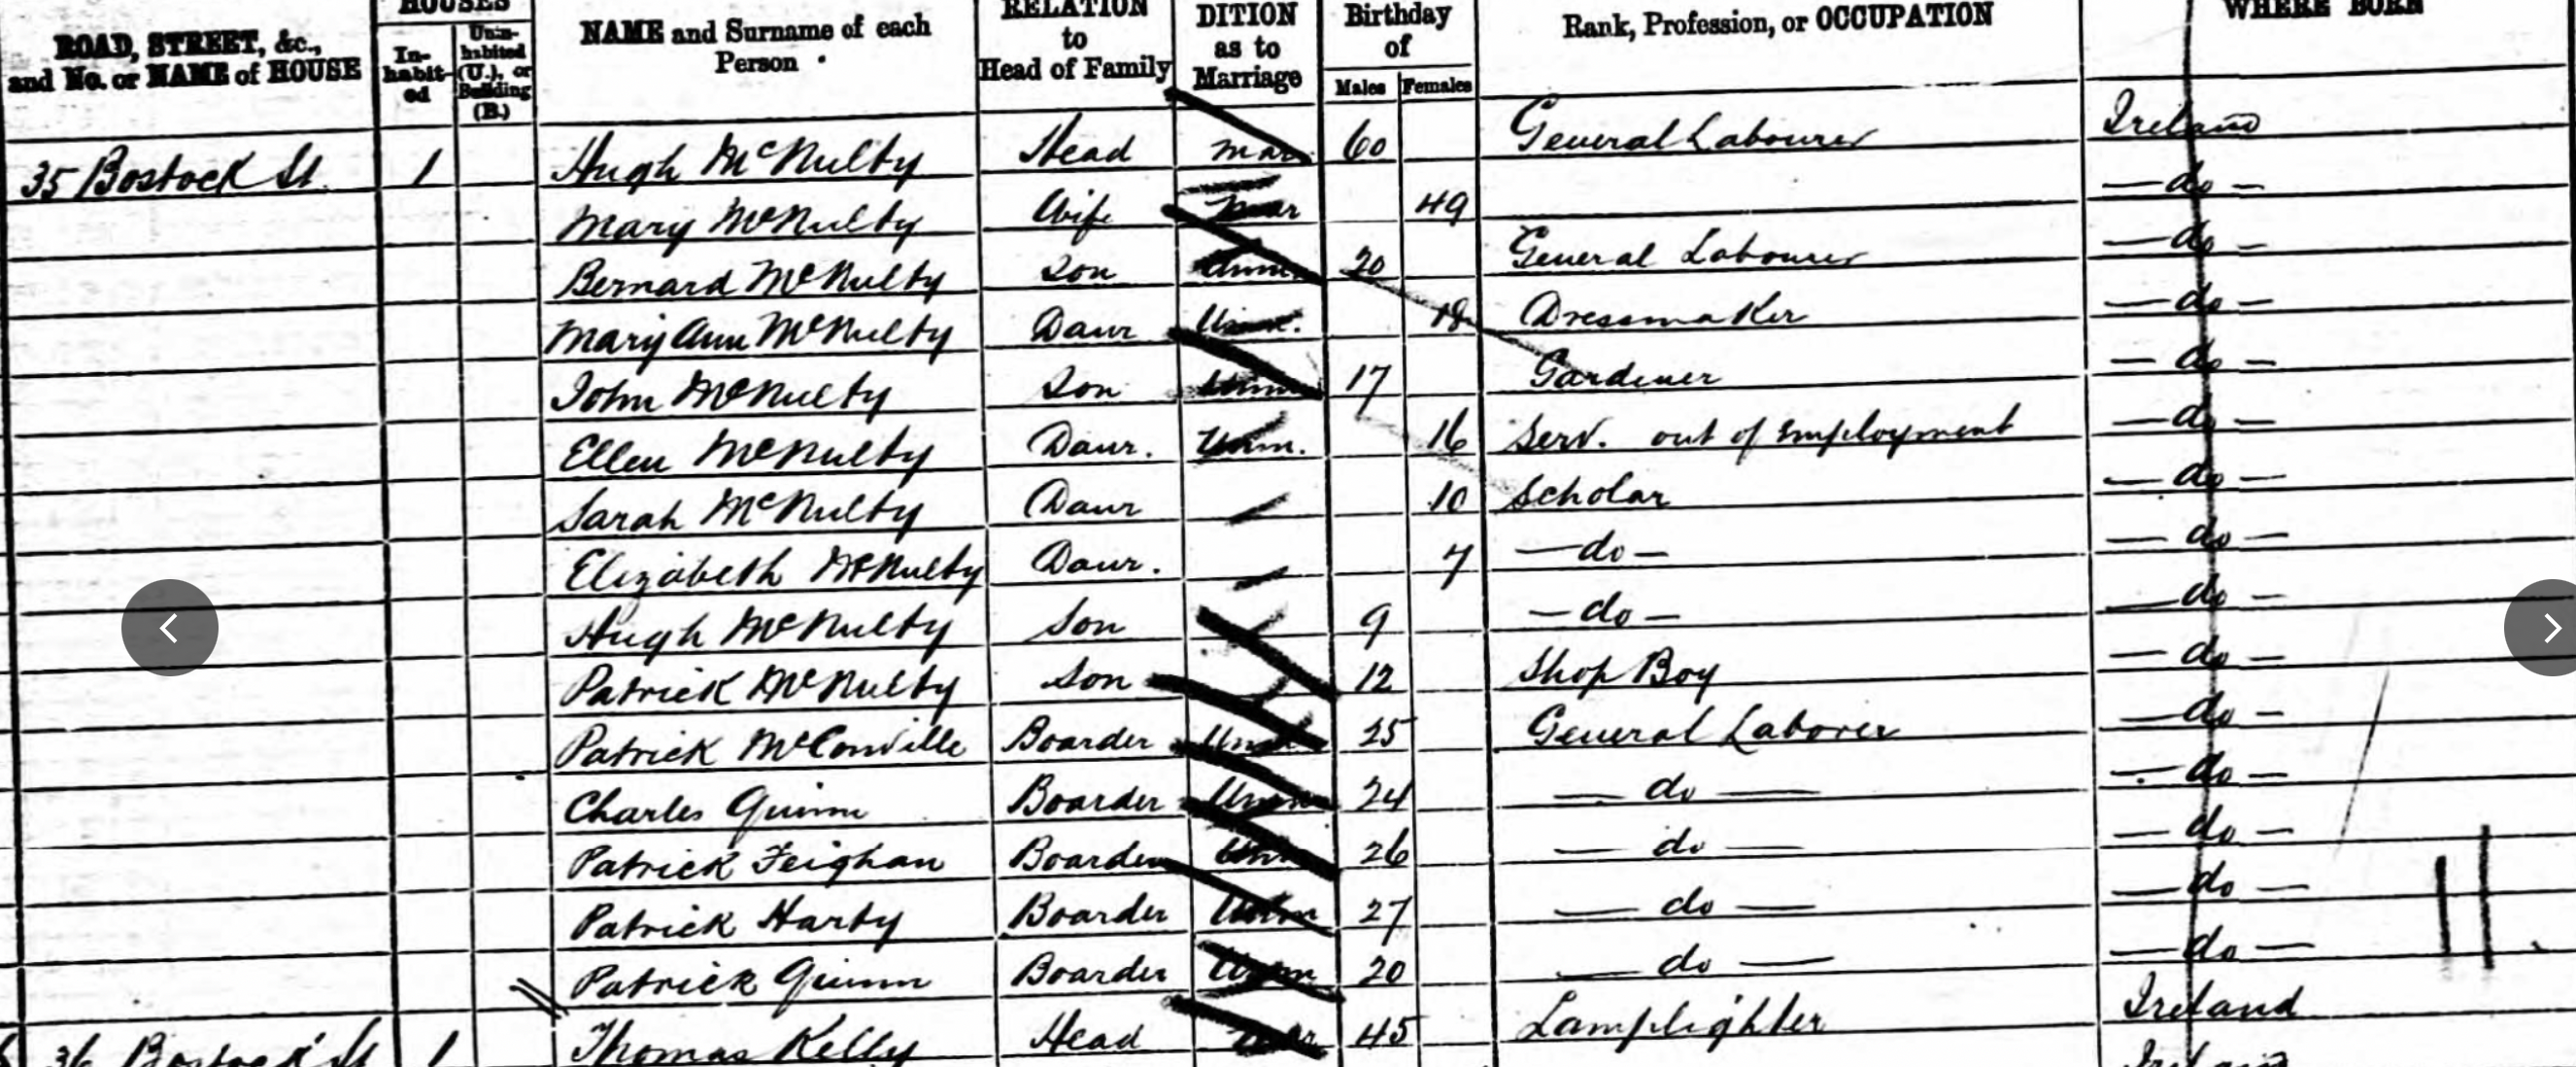 HOUSES RELATION DITION Birthday WHERE BORN
ROAD, STREET, &c., and No. or NAME of HOUSE
In-habit-ed
Unin-habited (U.), or Building (B.)
NAME and Surname of each Person
RELATION to Head of Family
DITION as to Marriage
Birthday of
Males Females
Rank, Profession, or OCCUPATION
WHERE BORN
35 Bostock St. 1 Hugh McNulty Head mar 60 General Labourer Ireland
Mary McNulty Wife mar 49 — do —
Bernard McNulty Son Unm. 20 General Labourer — do —
Mary Ann McNulty Daur Unm. 18 Dressmaker — do —
John McNulty Son Unm 17 Gardener — do —
Ellen McNulty Daur. Unm. 16 Serv. out of Employment — do —
Sarah McNulty Daur 10 Scholar — do —
Elizabeth McNulty Daur. 7 — do — — do —
Hugh McNulty Son 9 — do — — do —
Patrick McNulty Son 12 Shop Boy — do —
Patrick McConville Boarder Unm 25 General Laborer — do —
Charles Quinn Boarder Unm 24 — do — — do —
Patrick Feighan Boarder Unm 26 — do — — do —
Patrick Harty Boarder Unm 27 — do — — do —
Patrick Quinn Boarder Unm 20 — do — — do —
36 Bostock St 1 Thomas Kelly Head Mar 45 Lamplighter Ireland
Ireland